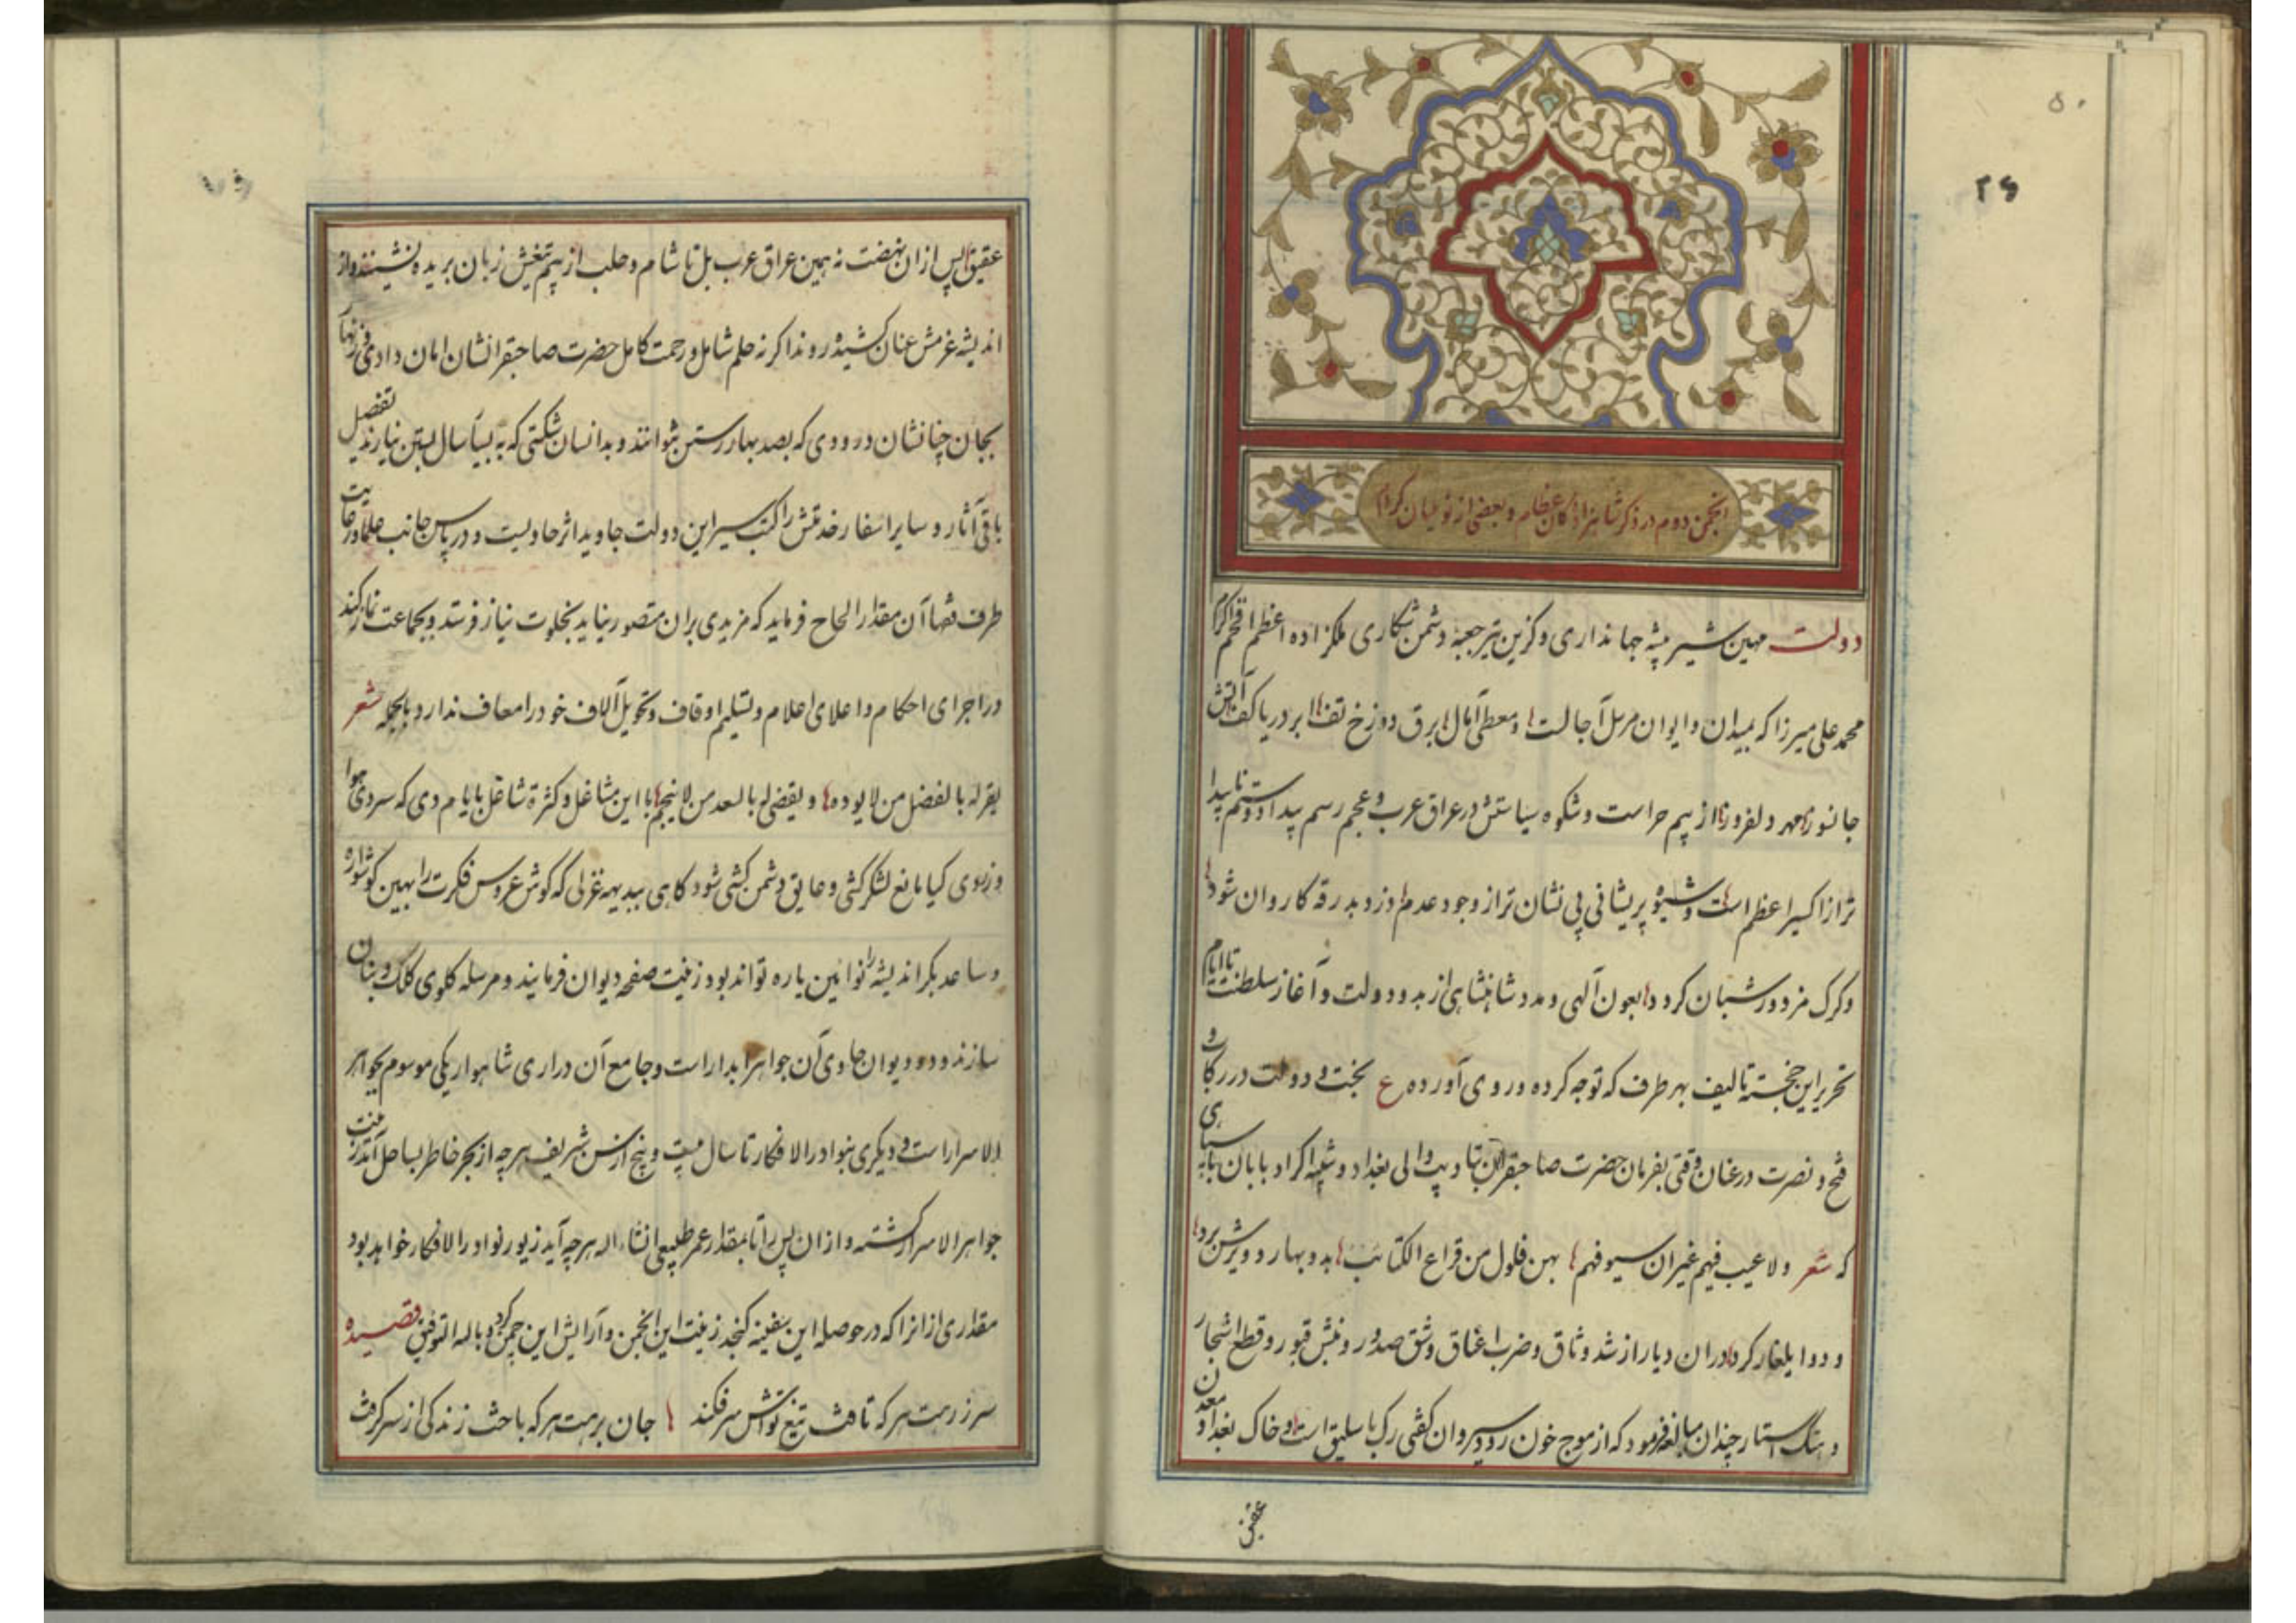 ۵۰
۲۶
انجمن دوم در ذکر شاهزادگان عظام و بعضی از نوئینان کرام
دولت مهین شیر بیشه جهانداری و کزین تیر جعبه دشمن شکاری ملکزاده اعظم افخم اکرم
محمد علی میرزا که بمیدان و ایوان مرسل آجالست و معطی آمال برق دوزخ تف ابر دریا کف آتش
جانسوز مهر دلفروز از بیم حراست و شکوه سیاستش در عراق عرب و عجم رسم بیداد و ستم ناپیدا
تر از اکسیر اعظم است و شیوه پریشانی بی نشان تر از وجود عدم دزد بدرقه کاروان شود
و کرک مزدور شبان کردد بعون آلهی و مدد شاهنشاهی از بدو دولت و آغاز سلطنت تا ایام
تحریر این خجسته تالیف بهر طرف که توجه کرده و روی آورده ع بخت و دولت در رکاب و
فتح و نصرت در عنان وقتی بفرمان حضرت صاحبقران بتادیب والی بغداد و تنبیه اکراد بابان با سپاهی
که شعر ولا عیب فیهم غیر ان سیوفهم بهن فلول من قراع الکتائب بدو بهار دو یرش برد
و دو ایلغار کرد در ان دیار از شد وثاق و ضرب اعناق و شق صدور و نبش قبور و قطع اشجار
و هتک استار چندان مبالغه فرمود که از موج خون رود سیروان کفتی رک باسلیق است و خاک بغداد معدن
عقیق
عقیق پس از ان نهضت نه همین عراق عرب بل تا شام و حلب از بیم تیغش زبان بریده نشینند و از
اندیشه عزمش عنان کشیده روند اکر نه حلم شامل و رحمت کامل حضرت صاحبقرانشان امان دادی و زنهار
بجان چنانشان درودی که بصد بهار رستن نتوانند و بدانسان شکستی که به بیست سال بستن نیارند تفصیل
باقی آثار و سایر اسفار خدمتش را کتب سیر این دولت جاوید اثر حاویست و در پاس جانب علما و رعایت
طرف فقها آن مقدار الحاح فرماید که مزیدی بران متصور نیاید بخلوت نیاز فرستد و بجماعت نماز کند
در اجرای احکام و اعلای اعلام و تسلیم اوقاف و تحویل آلاف خود را معاف ندارد بالجمله شعر
یقر له بالفضل من لا یوده و یقضی له بالسعد من لا ینجم با این مشاغل و کثرة شاغل بایام دی که سردی هوا
و زبوی کیا مانع لشکر کشی و عایق دشمن کشی شود کاهی ببدیهه غزلی که کوش عروس فکرت را بهین کوشواره
و ساعد بکر اندیشه را نوآئین یاره تواند بود زینت صفحه دیوان فرمایند و مرسله کلوی کلک و بنان
سازند و دو دیوان حاوی آن جواهر ابدار است و جامع آن دراری شاهوار یکی موسوم بجواهر
الاسرار است و دیکری بنوادر الافکار تا سال بیست و پنج از سن شریف هرچه از بحر خاطر بساحل آمد زینت
جواهر الاسرار کشته و از ان پس را تا بمقدار عمر طبیعی انشاء اله هرچه آید زیور نوادر الافکار خواهد بود
مقداری از انرا که در حوصله این سفینه کنجد زینت این انجمن و آرایش این چمن کرد و باله التوفیق قصیده
سر ز رهت هر که تافت تیغ تواش سر فکند جان برهت هر که باخت زندکی از سر کرفت